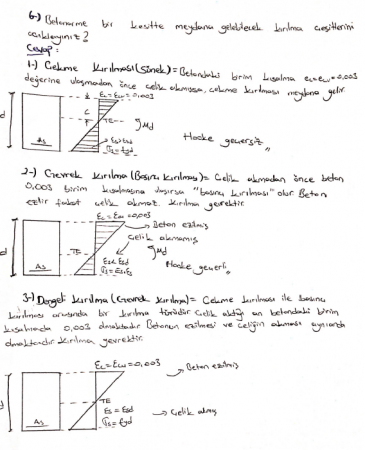 6-) Betonarme bir kesitte meydana gelebilecek kırılma çeşitlerini
açıklayınız?
Cevap:
1-) Çekme Kırılması (Sünek) = Betondaki birim kısalma εc=εcu=0.003
değerine ulaşmadan önce çelik akmışsa, çekme kırılması meydana gelir.
εc=εcu=0,003
d
C
TE
Md
As
εs>εsd
σs=fyd
Hooke geçersiz
2-) Gevrek kırılma (Basınç kırılması) = Çelik akmadan önce beton
0,003 birim kısalmasına ulaşırsa "basınç kırılması" olur Beton
ezilir fakat çelik akmaz. Kırılma gevrektir.
εc=εcu=0,003
Beton ezilmiş
Çelik akmamış
d
TE
Md
As
εs<εsd
σs=εs.Es
Hooke geçerli
3-) Dengeli kırılma (Gevrek kırılma) = Çekme kırılması ile basınç
kırılması arasında bir kırılma türüdür Çelik aktığı an betondaki birim
kısalmada 0,003 olmaktadır Betonun ezilmesi ve çeliğin akması aynı anda
olmaktadır Kırılma gevrektir.
εc=εcu=0,003
Beton ezilmiş
d
TE
εs=εsd
Çelik akmış
As
σs=fyd